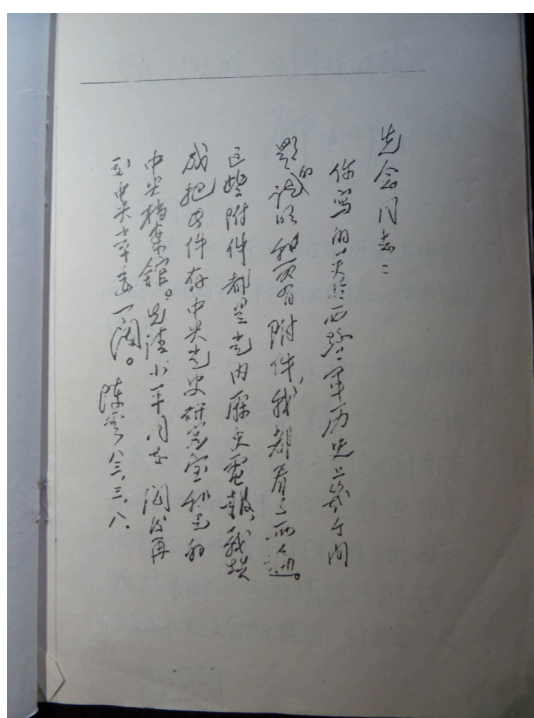 先念同志：
你写的关于西路军历史上几个问
题的说明和所有附件，我都看了两遍。
这些附件都是党内历史电报，我赞
成把此件存中央党史研究室和党的
中央档案馆。先请小平同志阅后再
交中央常委一阅。
陈云 八三、三、八、